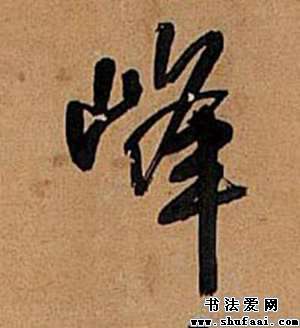 峰
书法爱网
www.shufaai.com